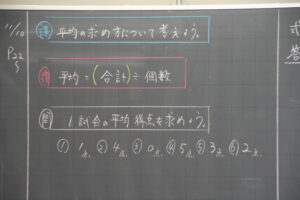 11/10
P22
㋕ 平均の求め方について考えよう。
平均=(合計)÷個数
1試合の平均得点を求めよう。
① 1点 ② 4点 ③ 0点 ④ 5点 ⑤ 3点 ⑥ 2点
式
答